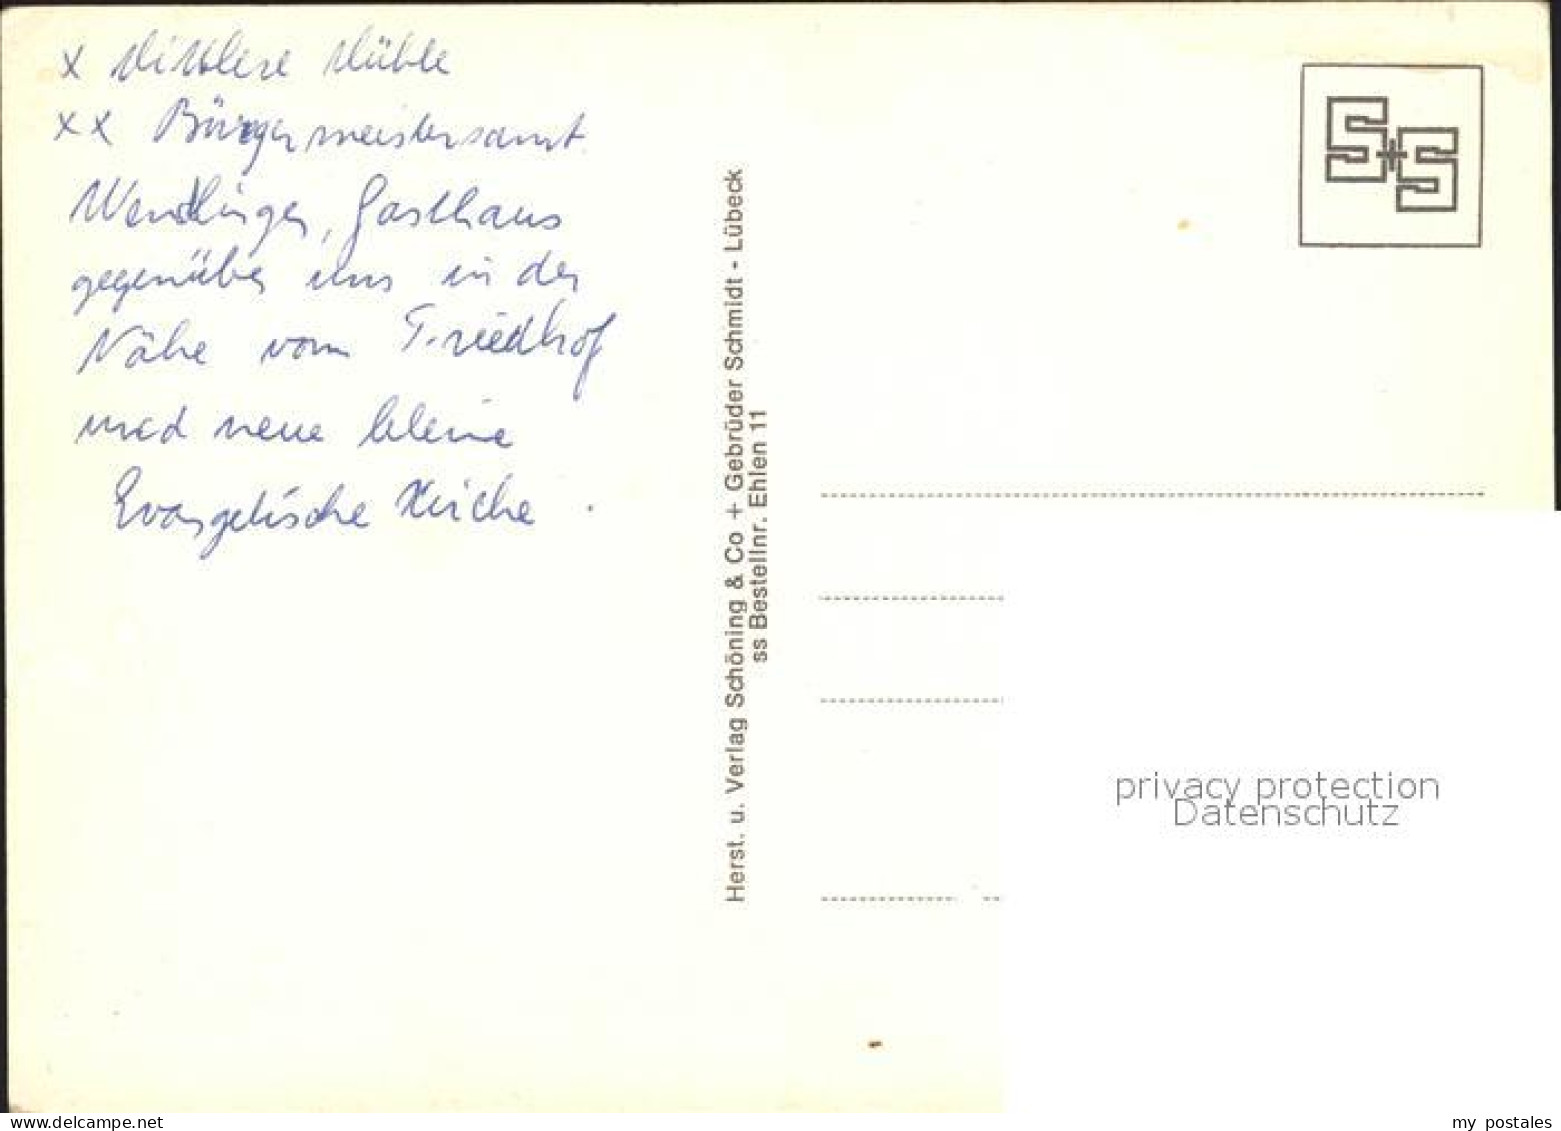 x Mittlere Mühle
xx Bürgermeistersamt.
Wendlinger, Gasthaus
gegenüber uns in der
Nähe vom Friedhof
und neue kleine
Evangelische Kirche.
Herst. u. Verlag Schöning & Co + Gebrüder Schmidt - Lübeck
ss Bestellnr. Ehlen 11
S+S
privacy protection
Datenschutz
www.delcampe.net
my_postales